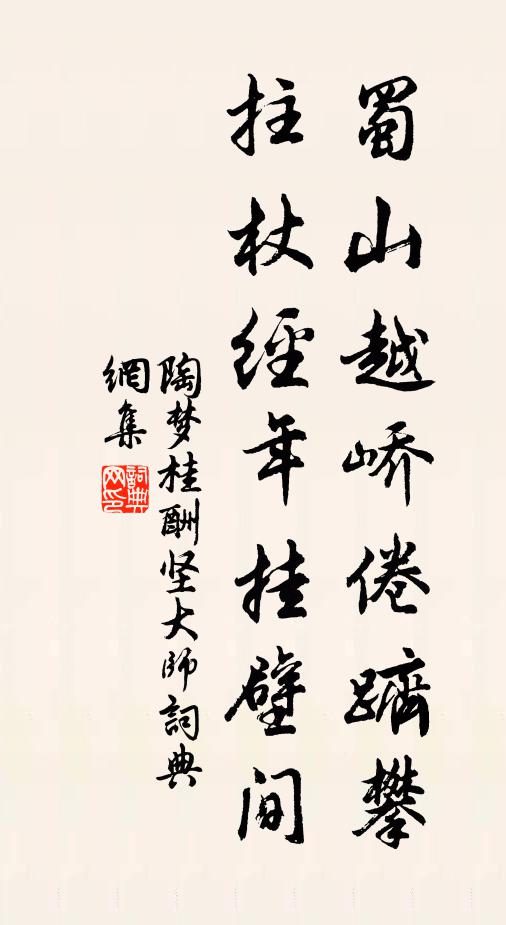 蜀山越峤倦躋攀
拄杖經年挂壁间
陶梦桂酬坚大师詞典
網集
詞典網印